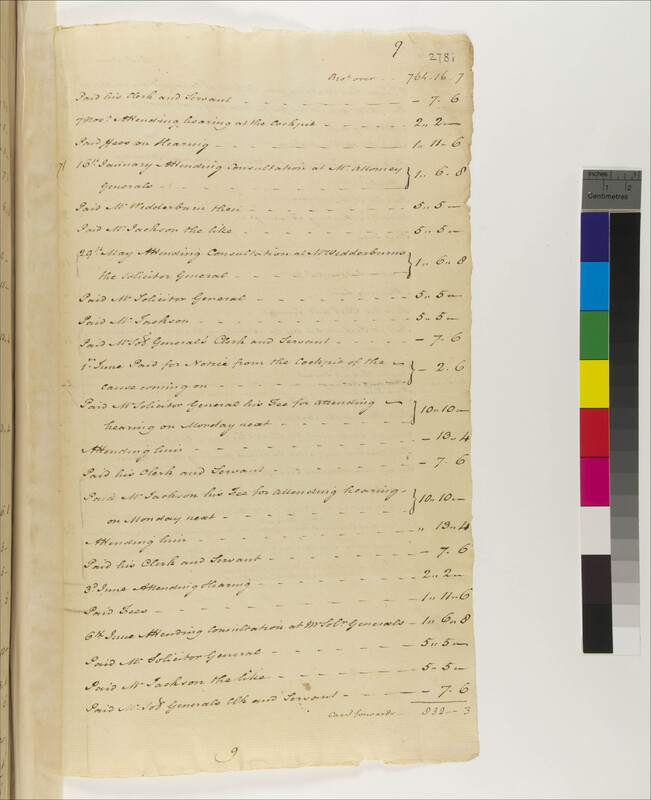 9
2781
Bro.t over - - 764-16-7
Paid his Clerk and Servant - - - - - - 7-6
7 Nov.r Attending hearing at the Cockpit - - - 2"2-
Paid ffees on Hearing - - - - - - 1"11-6
16th January Attending Consultation at Mr. Attorney
Generals - - - - - - 1"6"8
Paid Mr. Wedderburn then - - - - - - 5"5-
Paid Mr. Jackson the like - - - - - - 5"5-
29th May Attending Consultation at Mr. Wedderburns
the Solicitor General - - - - - - 1"6"8
Paid Mr. Solicitor General - - - - - - 5"5-
Paid Mr. Jackson - - - - - - 5-5-
Paid Mr. Sol.r General's Clerk and Servant - - - - 7-6
1st June Paid for Notice from the Cockpit of the
cause coming on - - - - - - 2-6
Paid Mr. Solicitor General his Fee for attending
hearing on Monday next - - - - 10"10-
Attending him - - - - - - 13"4
Paid his Clerk and Servant - - - - - - 7-6
Paid Mr. Jackson his Fee for attending hearing -
on Monday next - - - - - - 10"10-
Attending him - - - - - - " 13"4
Paid his Clerk and Servant - - - - - - 7-6
3d June Attending Hearing - - - - - - 2"2-
Paid Fees - - - - - - 1"11-6
6th June Attending Consultation at Mr. Sol.r Generals - 1"6"8
Paid Mr. Solicitor General - - - - - - 5"5-
Paid Mr. Jackson the like - - - - - - 5-5-
Paid Mr. Sol.r Generals Clk and Servant - - - - 7-6
Car.d forwards - 832-3
9
Inches
1
2
Centimetres